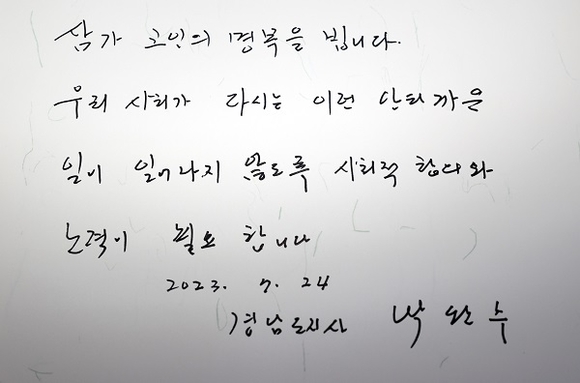 삼가 고인의 명복을 빕니다.
우리 사회가 다시는 이런 안타까운
일이 일어나지 않도록 사회적 합의와
노력이 필요 합니다
2023. 7. 24
경남도지사 박완수